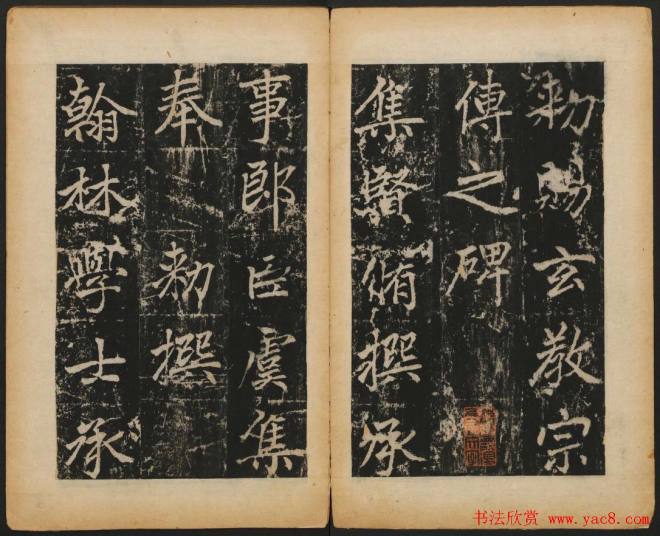 勑賜玄教宗
傳之碑
集賢脩撰承
事郎臣虞集
奉
勑撰
翰林學士承
书法欣赏 www.yac8.com